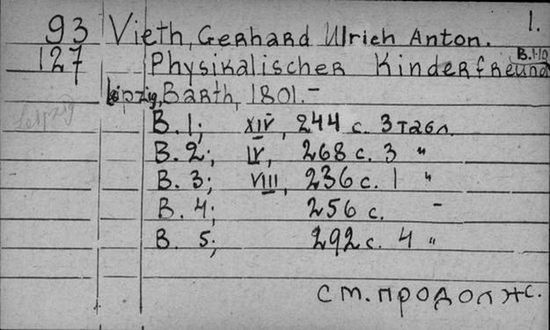 1.
93 Vieth, Gerhard Ulrich Anton.
127 Physikalischer Kinderfreund B.1-10
Leipzig, Barth, 1801.-
Leipzig
B. 1; XIV, 244 с. 3 табл.
B. 2; IV, 268 с. 3 "
B. 3; VIII, 236 с. 1 "
B. 4; 256 с. -
B. 5; 292 с. 4 "
см. продолж.